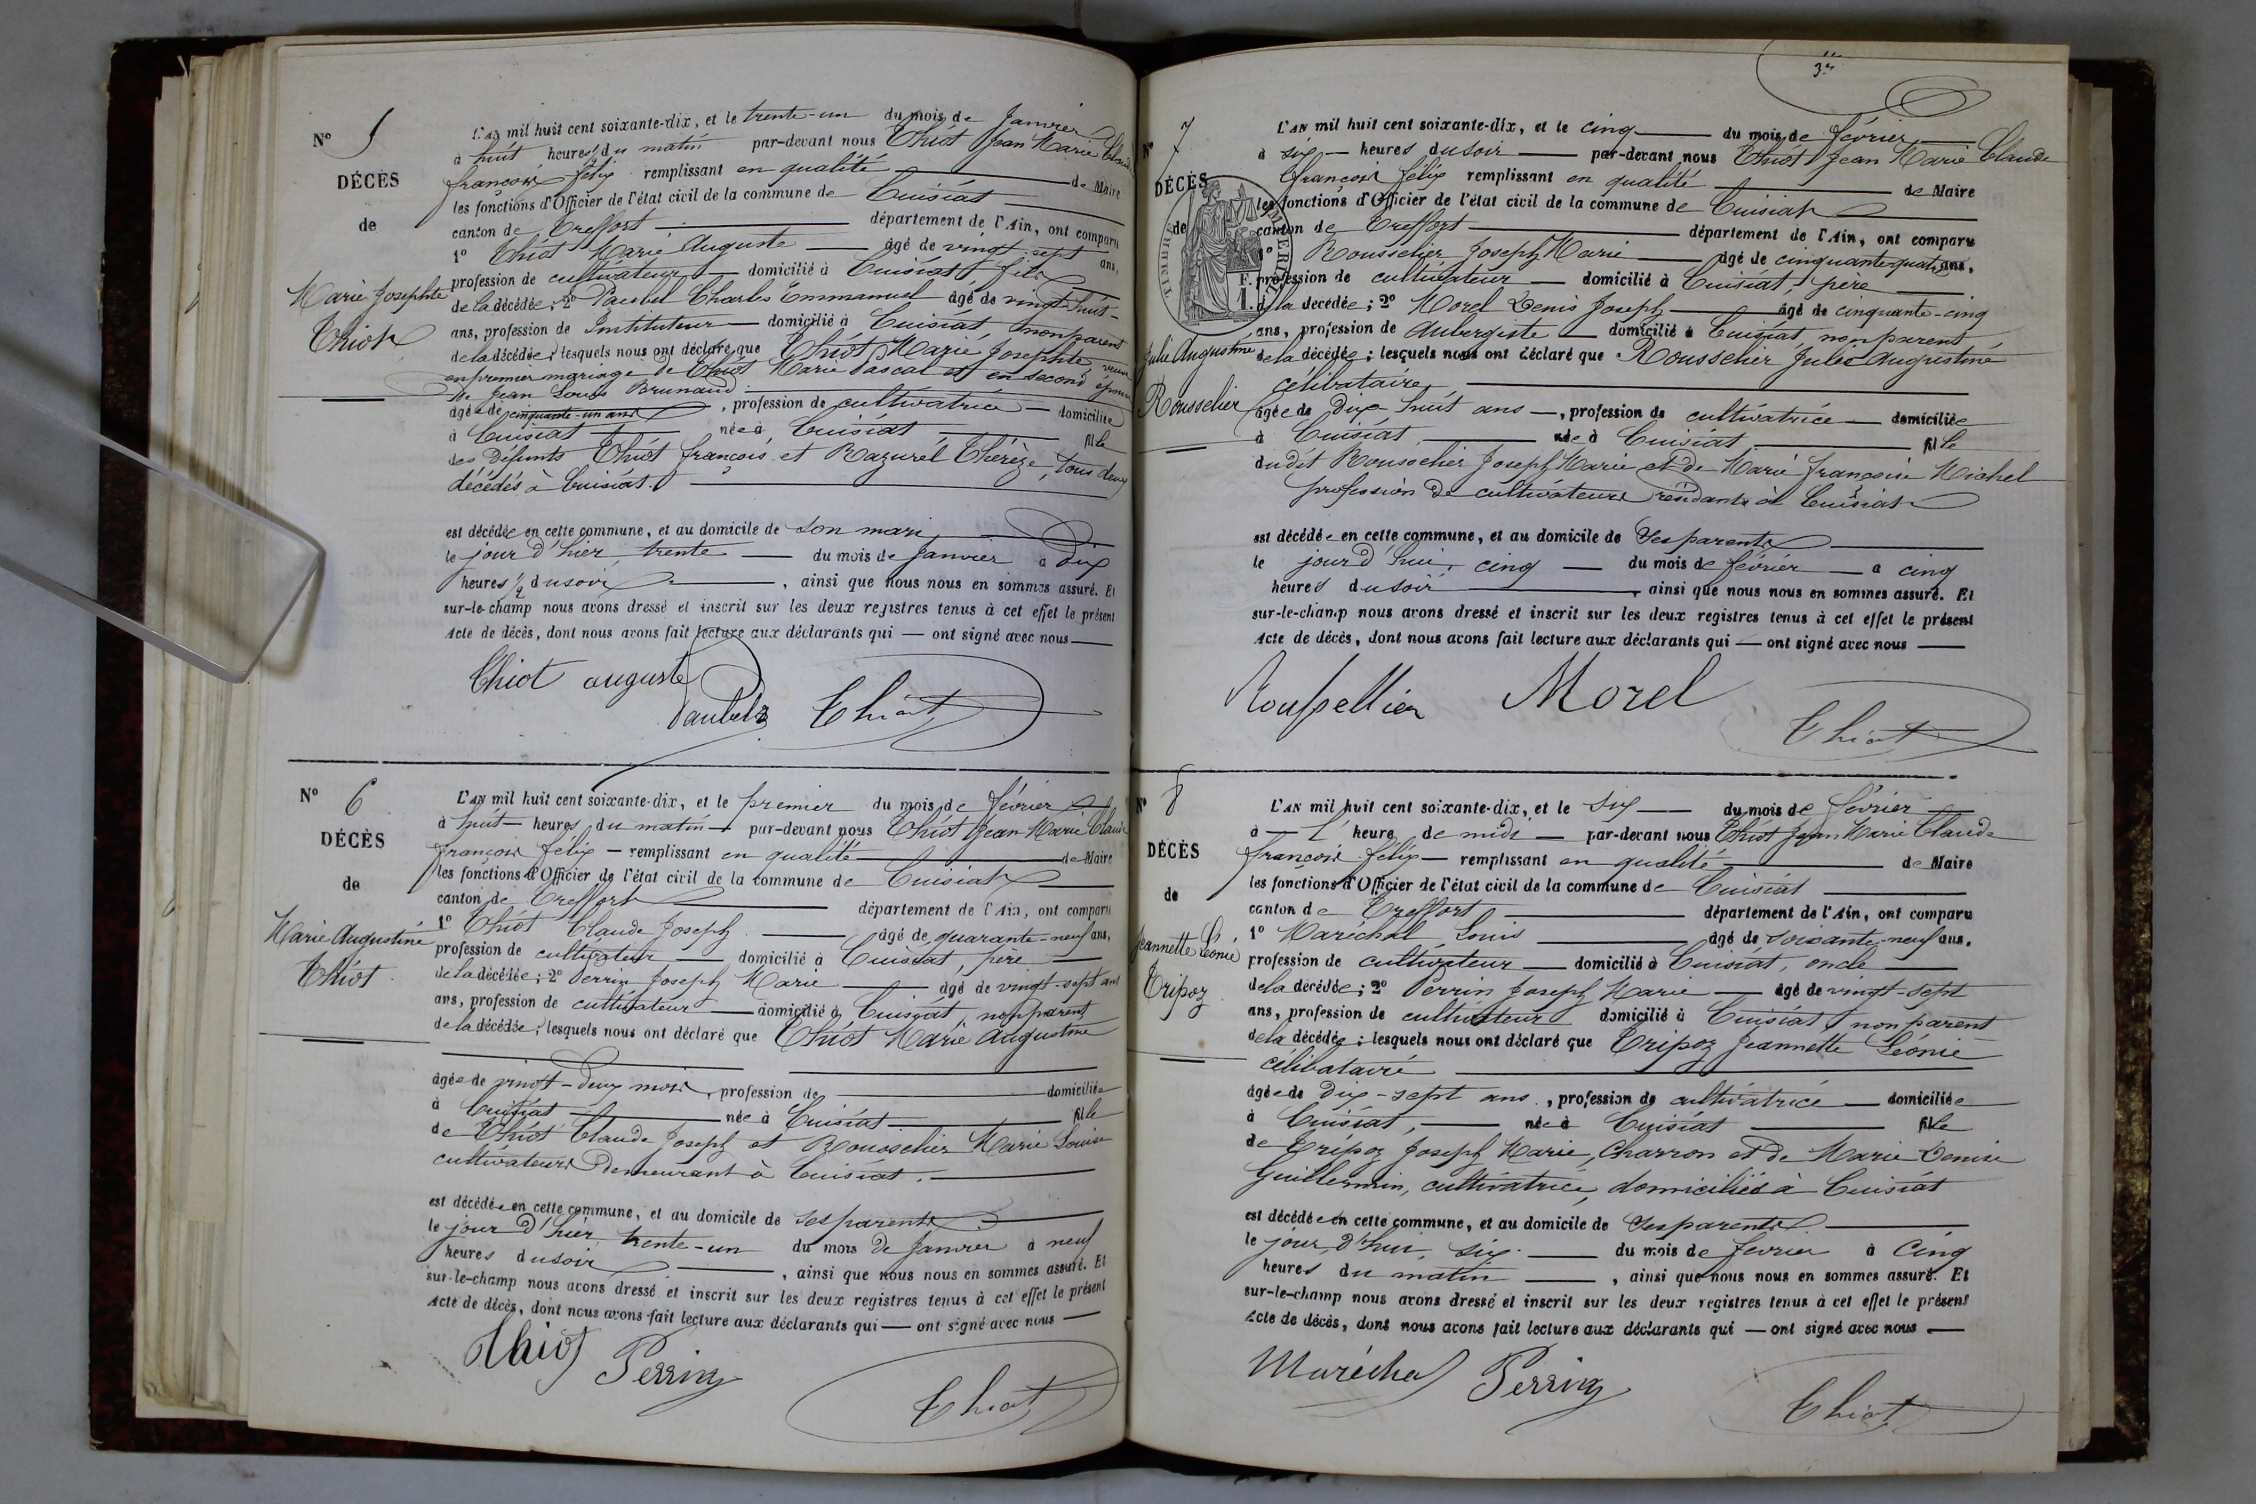 N° 5
DÉCÈS
de
Marie Josephte
Thiot
L'AN mil huit cent soixante-dix, et le trente-un du mois de Janvier
à huit heures du matin par-devant nous Thiot Jean Marie Claude
françois félix remplissant en qualité de Maire
les fonctions d'Officier de l'état civil de la commune de Cuisiat
canton de Treffort département de l'Ain, ont comparu
1° Thiot Marie Auguste âgé de vingt-sept ans,
profession de cultivateur domicilié à Cuisiat, fils
de la décédée; 2° Paubel Charles Emmanuel âgé de vingt-huit
ans, profession de Instituteur domicilié à Cuisiat, non parent
de la décédée; lesquels nous ont déclaré que Thiot Marie Josephte, veuve
en premier mariage de Thiot Marie Pascal et en second épouse
de Jean Louis Brunaud
âgée de cinquante-un ans, profession de cultivatrice domiciliée
à Cuisiat née à Cuisiat fille
des défunts Thiot françois et Razurel Thérèze, tous deux
décédés à Cuisiat.
est décédée en cette commune, et au domicile de son mari
le jour d'hier trente du mois de Janvier à dix
heures 1/2 du soir, ainsi que nous nous en sommes assuré. Et
sur-le-champ nous avons dressé et inscrit sur les deux registres tenus à cet effet le présent
Acte de décès, dont nous avons fait lecture aux déclarants qui ont signé avec nous
Thiot auguste
Paubel Thiot
N° 6
DÉCÈS
de
Marie Augustine
Thiot
L'AN mil huit cent soixante-dix, et le premier du mois de février
à huit heures du matin par-devant nous Thiot Jean Marie Claude
françois félix remplissant en qualité de Maire
les fonctions d'Officier de l'état civil de la commune de Cuisiat
canton de Treffort département de l'Ain, ont comparu
1° Thiot Claude Joseph âgé de quarante-neuf ans,
profession de cultivateur domicilié à Cuisiat, père
de la décédée; 2° Perrin Joseph Marie âgé de vingt-sept ans
ans, profession de cultivateur domicilié à Cuisiat, non parent
de la décédée; lesquels nous ont déclaré que Thiot Marie Augustine
âgée de vingt-deux mois, profession de domiciliée
à Cuisiat née à Cuisiat fille
de Thiot Claude Joseph et Rousselier Marie Louise
cultivateurs demeurant à Cuisiat.
est décédée en cette commune, et au domicile de ses parents
le jour d'hier, trente-un du mois de Janvier à neuf
heures du soir, ainsi que nous nous en sommes assuré. Et
sur-le-champ nous avons dressé et inscrit sur les deux registres tenus à cet effet le présent
Acte de décès, dont nous avons fait lecture aux déclarants qui ont signé avec nous
Thiot Perrin
Thiot
N° 7
DÉCÈS
de
Julie Augustine
Rousselier
L'AN mil huit cent soixante-dix, et le cinq du mois de février
à six heures du soir par-devant nous Thiot Jean Marie Claude
françois félix remplissant en qualité de Maire
les fonctions d'Officier de l'état civil de la commune de Cuisiat
canton de Treffort département de l'Ain, ont comparu
1° Rousselier Joseph Marie âgé de cinquante-quatre ans,
profession de cultivateur domicilié à Cuisiat, père
de la décédée; 2° Morel Denis Joseph âgé de cinquante-cinq
ans, profession de Aubergiste domicilié à Cuisiat, non parent
de la décédée; lesquels nous ont déclaré que Rousselier Julie Augustine
célibataire,
âgée de dix-huit ans, profession de cultivatrice domiciliée
à Cuisiat, née à Cuisiat fille
dudit Rousselier Joseph Marie et de Marie françoise Michel
profession de cultivateurs résidants à Cuisiat
est décédée en cette commune, et au domicile de ses parents
le jour d'hui, cinq du mois de février à cinq
heures du soir, ainsi que nous nous en sommes assuré. Et
sur-le-champ nous avons dressé et inscrit sur les deux registres tenus à cet effet le présent
Acte de décès, dont nous avons fait lecture aux déclarants qui ont signé avec nous
Roussellier Morel
Thiot
N° 8
DÉCÈS
de
Jeannette Léonie
Tripoz
L'AN mil huit cent soixante-dix, et le six du mois de février
à l'heure de midi par-devant nous Thiot Jean Marie Claude
françois félix remplissant en qualité de Maire
les fonctions d'Officier de l'état civil de la commune de Cuisiat
canton de Treffort département de l'Ain, ont comparu
1° Maréchal Louis âgé de soixante-neuf ans,
profession de cultivateur domicilié à Cuisiat, oncle
de la décédée; 2° Perrin Joseph Marie âgé de vingt-sept
ans, profession de cultivateur domicilié à Cuisiat, non parent
de la décédée; lesquels nous ont déclaré que Tripoz Jeannette Léonie
célibataire
âgée de dix-sept ans, profession de cultivatrice domiciliée
à Cuisiat, née à Cuisiat fille
de Tripoz Joseph Marie, Charron et de Marie Denise
Guillermin, cultivatrice, domiciliés à Cuisiat
est décédée en cette commune, et au domicile de ses parents
le jour d'hui, six du mois de février à cinq
heures du matin, ainsi que nous nous en sommes assuré. Et
sur-le-champ nous avons dressé et inscrit sur les deux registres tenus à cet effet le présent
Acte de décès, dont nous avons fait lecture aux déclarants qui ont signé avec nous
Maréchal Perrin
Thiot